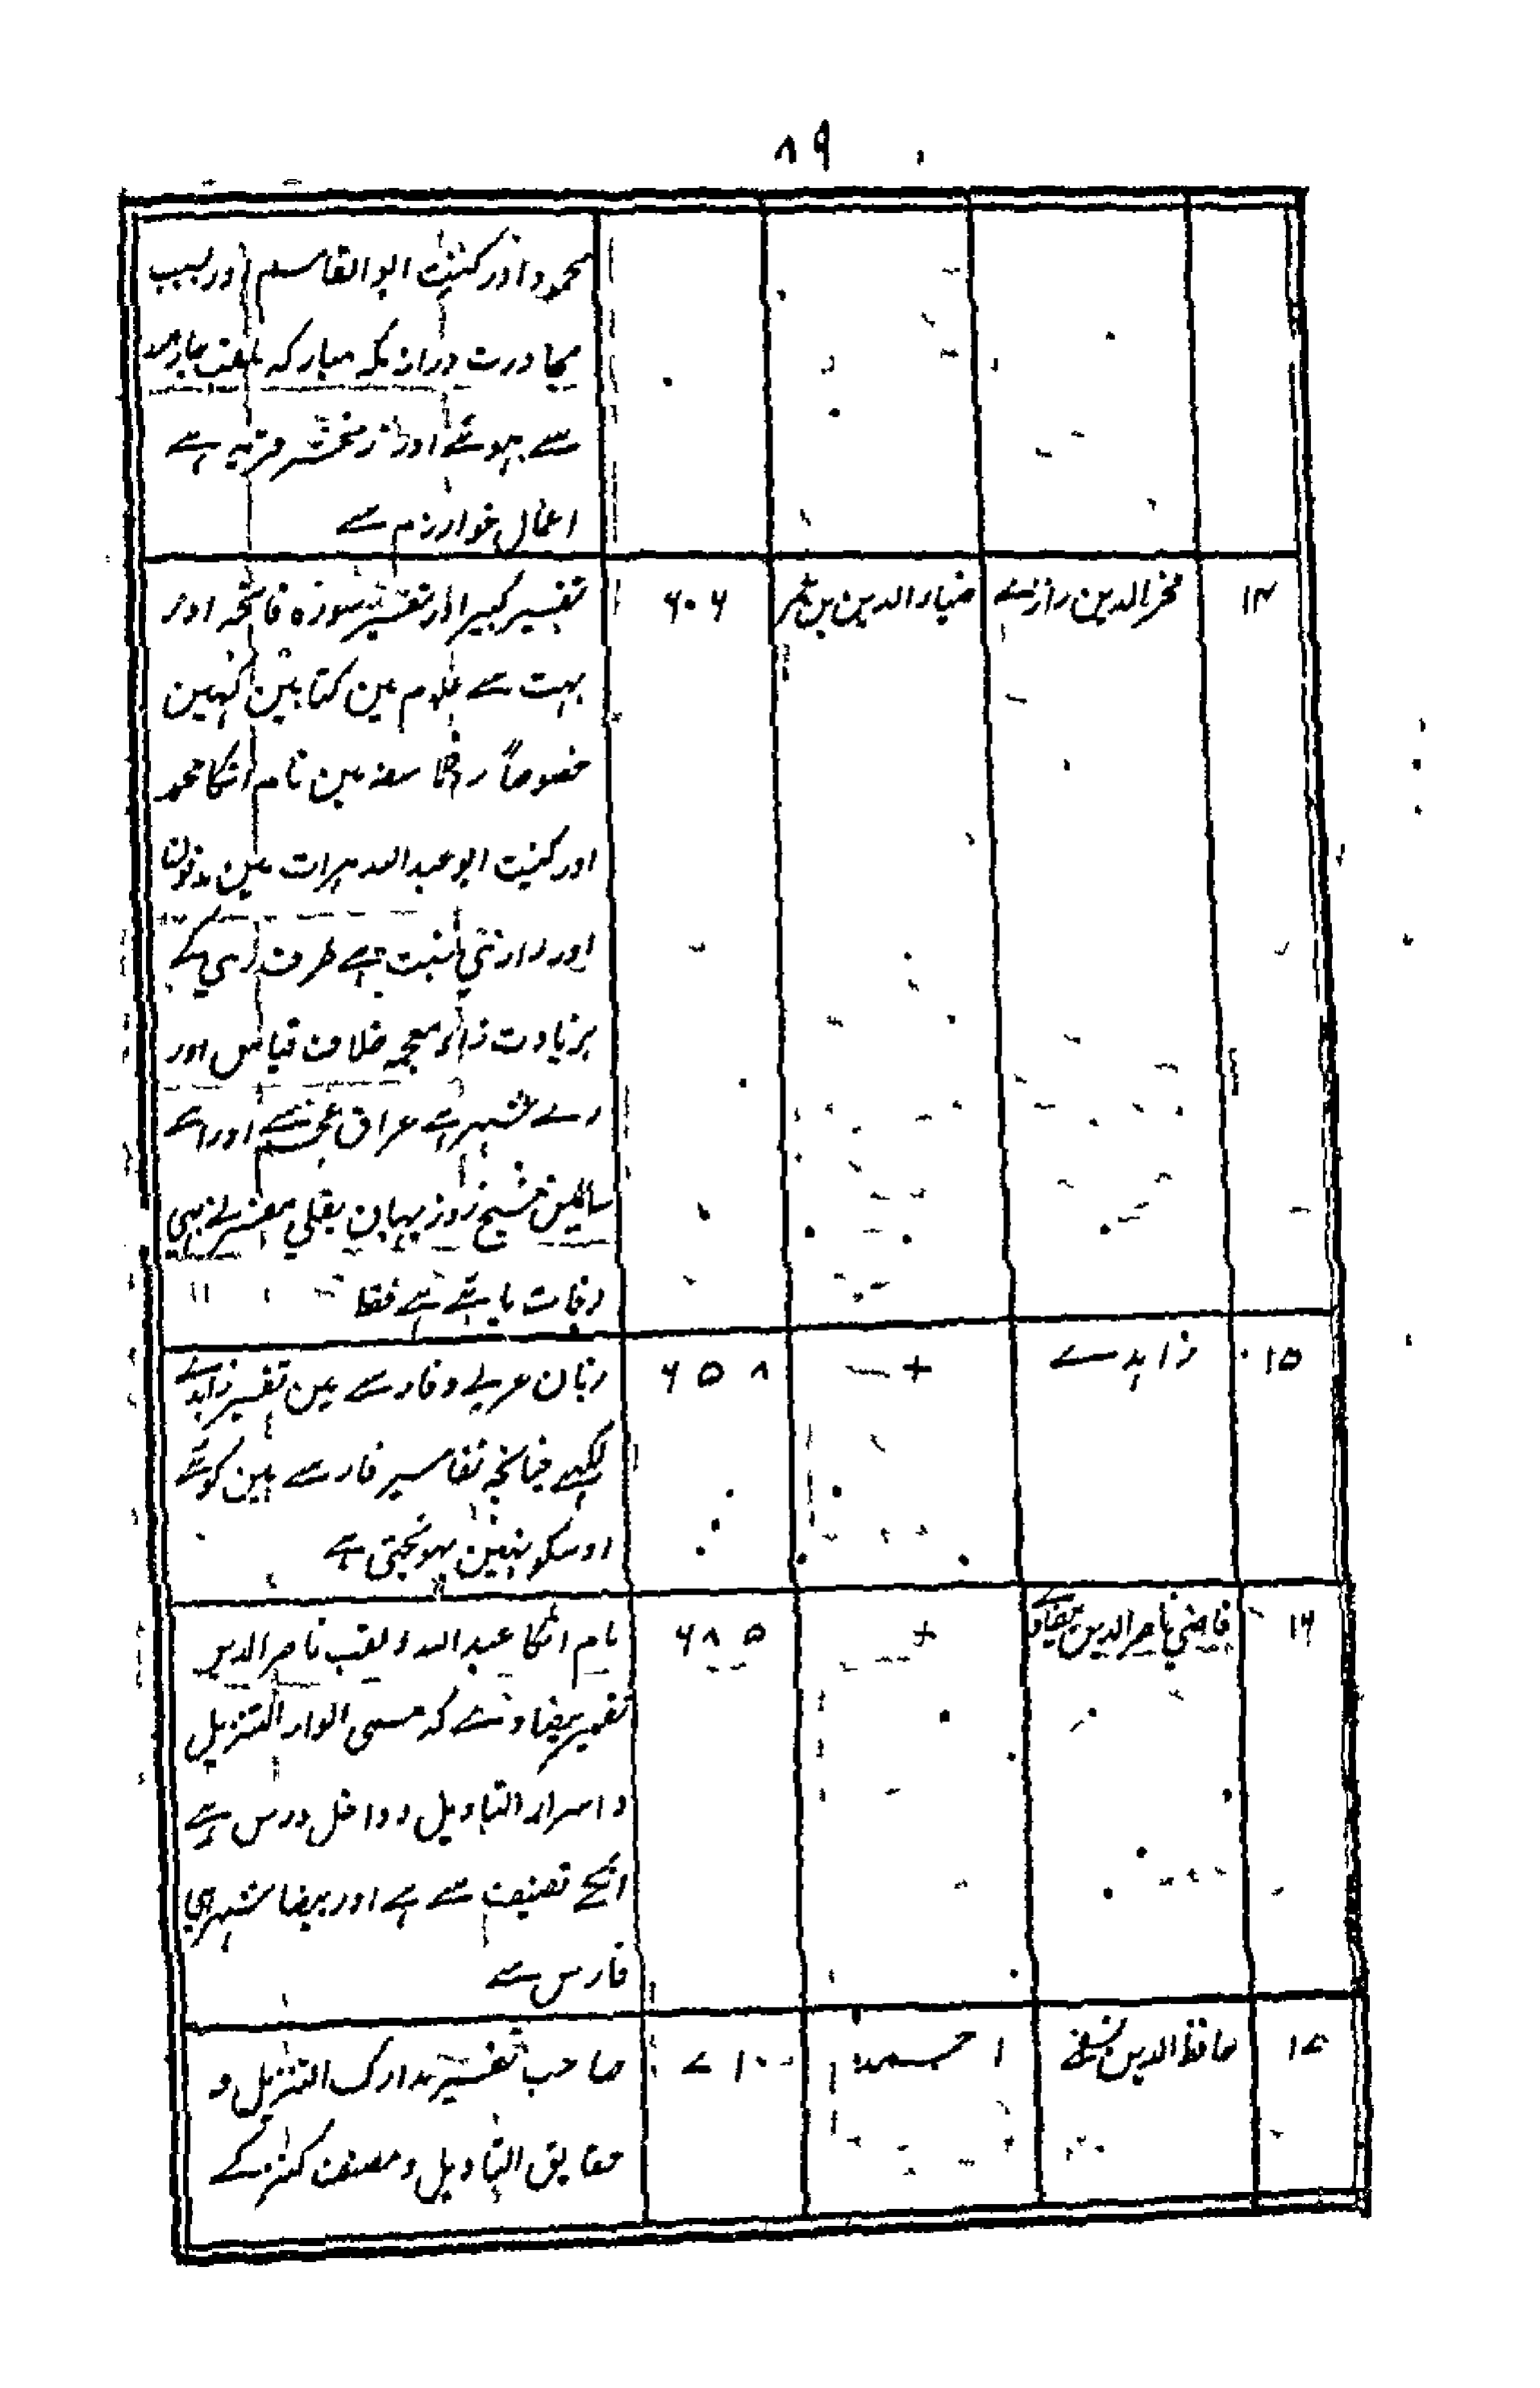 ۸۹
محمود اور کنیت ابوالقاسم اور بسبب
مجاورت دراز مکہ مبارکہ ملقب بجار اللہ
سے ہوئے اور زمخشر قریہ ہے
اعمال خوارزم سے
۱۴ فخر الدین رازے ضیاء الدین بن عمر ۶۰۶ تفسیر کبیر اور تفسیر سورہ فاتحہ اور
بہت سے علوم مین کتابین لکہین
خصوصاً فلاسفہ مین نام انکا محمد
اور کنیت ابو عبد اللہ ہرات مین مدفون
اور رازی نسبت ہے طرف ری کے
بزیادت زاء معجمہ خلاف قیاس اور
رے شہر ہے عراق عجم سے اور اسے
سالمین شیخ روز بہان بقلی مفسر نے بہی
وفات پائے ہے فقط
۱۵ زاہدے + ۶۵۸ زبان عربے و فارسے مین تفسیر زاہدے
لکہے چنانچہ تفاسیر فارسے مین کوئے
اوسکو نہین پہونچتی ہے
۱۶ قاضی ناصر الدین بیضاوے + ۶۸۵ نام انکا عبد اللہ و لقب ناصر الدین
تفسیر بیضاوے کہ مسمی انوار التنزیل
و اسرار التاویل و داخل درس ہے
انکے تصنیف سے ہے اور بیضا شہر ہی
فارس سے
۱۷ حافظ الدین نسفے احمد ۷۱۰ صاحب تفسیر مدارک التنزیل و
حقایق التاویل و مصنف کنز کے